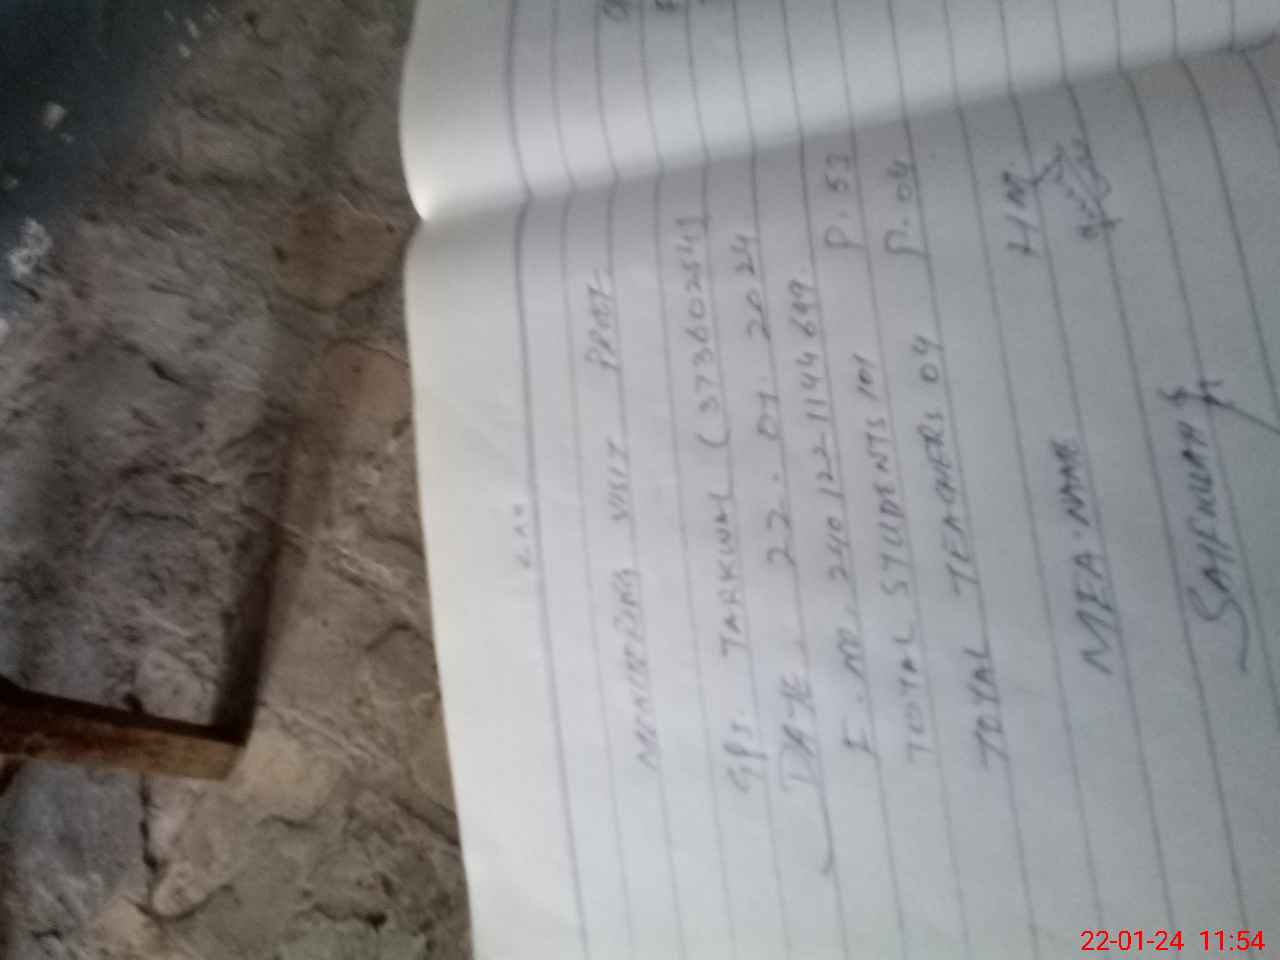 MONITORING VISIT PROT-
GPS. TARKWAL (37360254)
DATE. 22.01.2024
I.NO. 240122 1144 699.
TOTAL STUDENTS 101 P. 53
TOTAL TEACHERS 04 P. 04
HM
MEA-NAME
SAIFULLAH
22-01-24 11:54